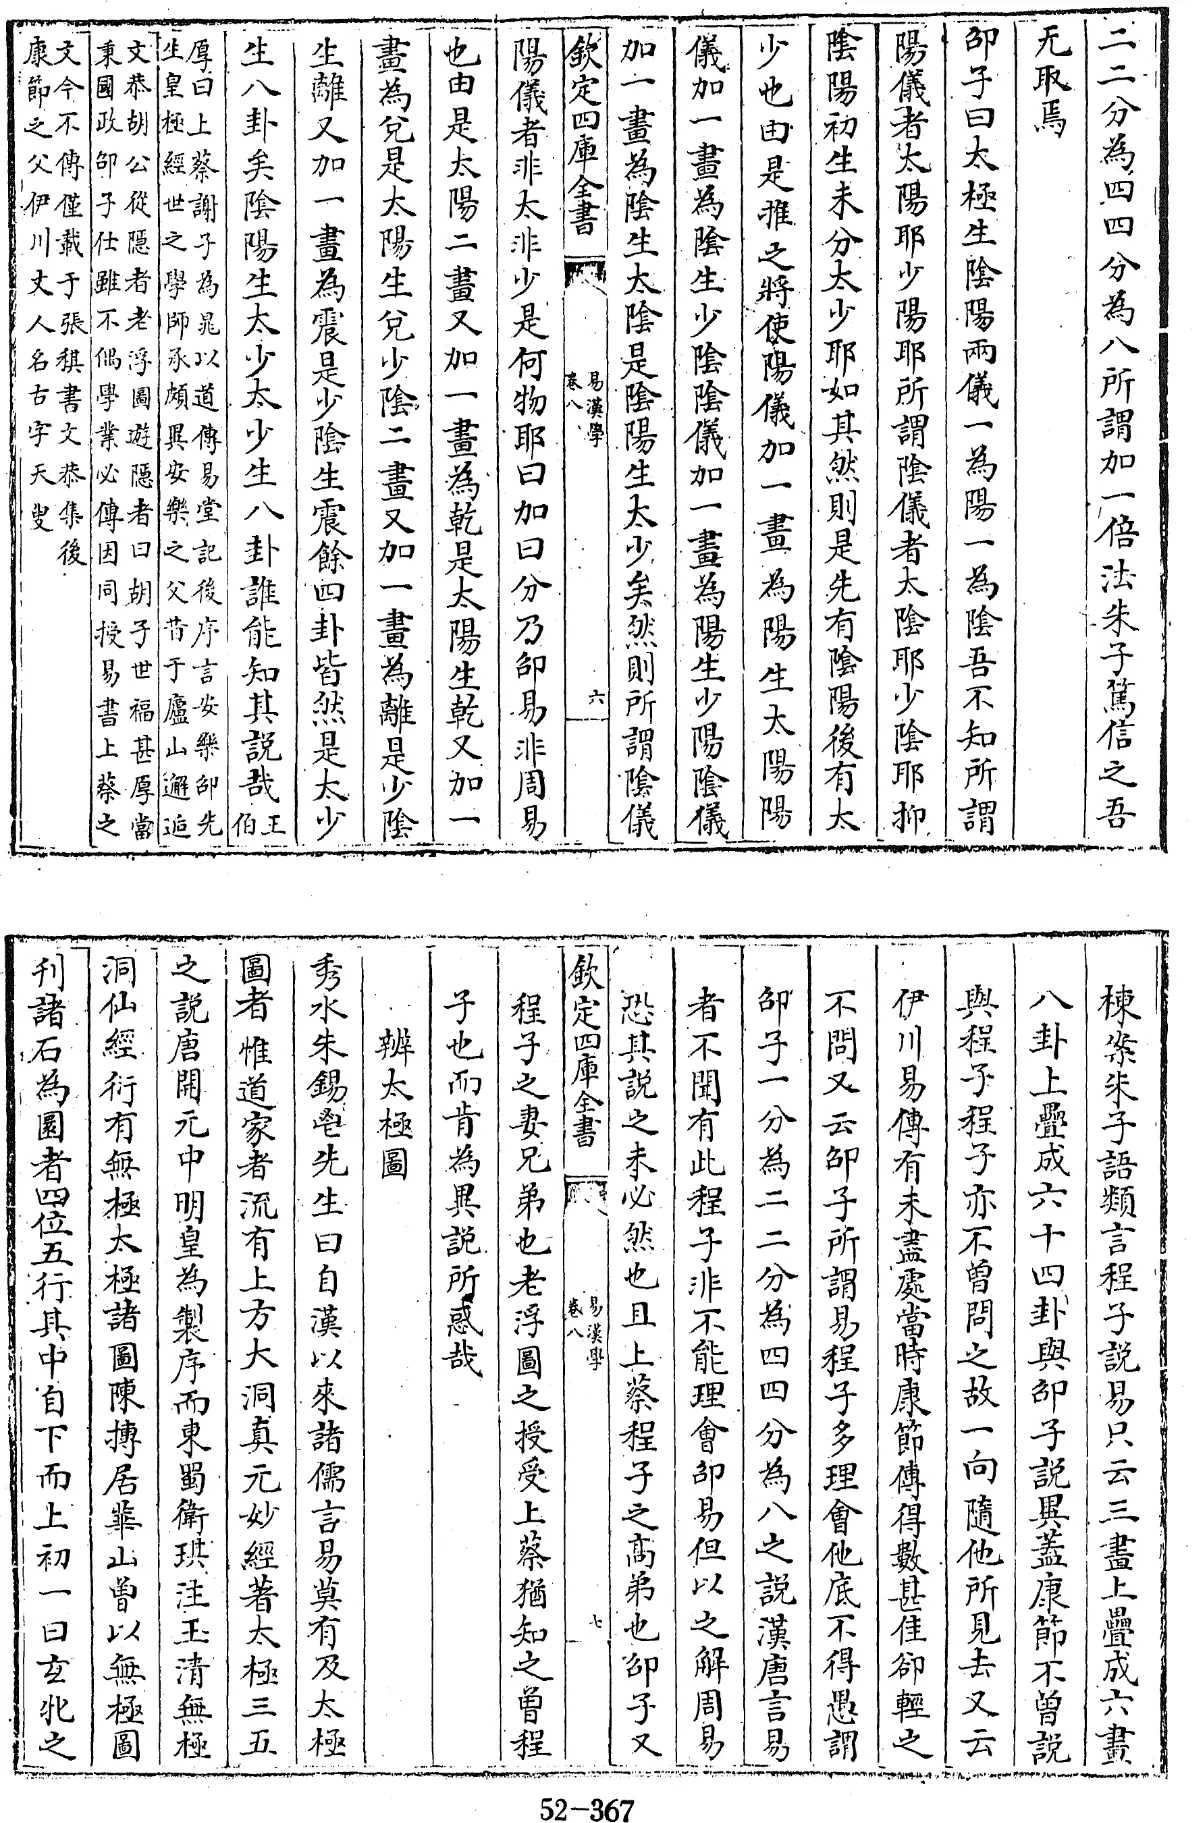 二二分為四四分為八所謂加一倍法朱子篤信之吾
无取焉
邵子曰太極生陰陽兩儀一為陽一為陰吾不知所謂
陽儀者太陽耶少陽耶所謂陰儀者太陰耶少陰耶抑
陰陽初生未分太少耶如其然則是先有陰陽後有太
少也由是推之將使陽儀加一畫為陽生太陽陽
儀加一畫為陰生少陰陰儀加一畫為陽生少陽陰儀
加一畫為陰生太陰是陰陽生太少矣然則所謂陰儀
欽定四庫全書
易漢學
卷八
六
陽儀者非太非少是何物耶曰加曰分乃邵易非周易
也由是太陽二畫又加一畫為乾是太陽生乾又加一
畫為兌是太陽生兌少陰二畫又加一畫為離是少陰
生離又加一畫為震是少陰生震餘四卦皆然是太少
生八卦矣陰陽生太少太少生八卦誰能知其說哉王伯
厚曰上蔡謝子為晁以道傳易堂記後序言安樂邵先
生皇極經世之學師承頗異安樂之父昔于廬山邂逅
文恭胡公從隱者老浮圖遊隱者曰胡子世福甚厚當
秉國政邵子仕雖不偶學業必傳因同授易書上蔡之
文今不傳僅載于張祺書文恭集後
康節之父伊川丈人名古字天叟
棟案朱子語類言程子說易只云三畫上疊成六畫
八卦上疊成六十四卦與邵子說異蓋康節不曾說
與程子程子亦不曾問之故一向隨他所見去又云
伊川易傳有未盡處當時康節傳得數甚佳卻輕之
不問又云邵子所謂易程子多理會他底不得愚謂
邵子一分為二二分為四四分為八之說漢唐言易
者不聞有此程子非不能理會邵易但以之解周易
恐其說之未必然也且上蔡程子之高弟也邵子又
欽定四庫全書
易漢學
卷八
七
程子之妻兄弟也老浮圖之授受上蔡猶知之曾程
子也而肯為異說所惑哉
辨太極圖
秀水朱錫鬯先生曰自漢以來諸儒言易莫有及太極
圖者惟道家者流有上方大洞真元妙經著太極三五
之說唐開元中明皇為製序而東蜀衛琪注玉清無極
洞仙經衍有無極太極諸圖陳摶居華山曾以無極圖
刊諸石為圜者四位五行其中自下而上初一曰玄牝之
52-367